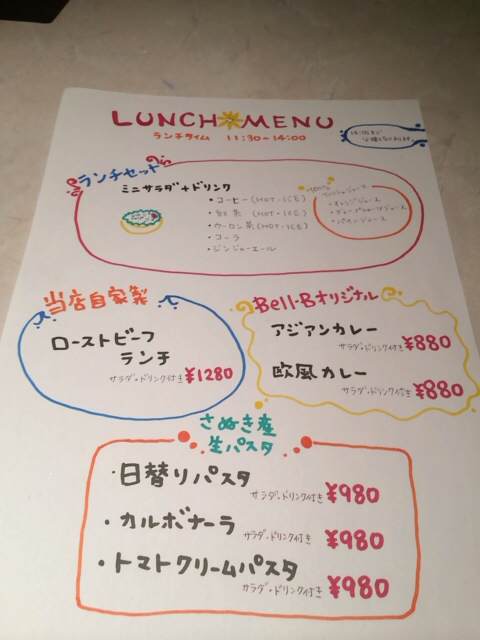 LUNCH MENU
ランチタイム 11:30~14:00
ランチセット
ミニサラダ+ドリンク
・コーヒー(HOT・ICE)
・紅茶 (HOT・ICE)
・ウーロン茶(HOT・ICE)
・コーラ
・ジンジャーエール
100%
・オレンジジュース
・グレープフルーツジュース
・パインジュース
当店自家製
ローストビーフ
ランチ
サラダ・ドリンク付き ¥1280
Bell-Bオリジナル
アジアンカレー
サラダ・ドリンク付き ¥880
欧風カレー
サラダ・ドリンク付き ¥880
さぬき産
生パスタ
・日替りパスタ
サラダ・ドリンク付き ¥980
・カルボナーラ
サラダ・ドリンク付き ¥980
・トマトクリームパスタ
サラダ・ドリンク付き ¥980